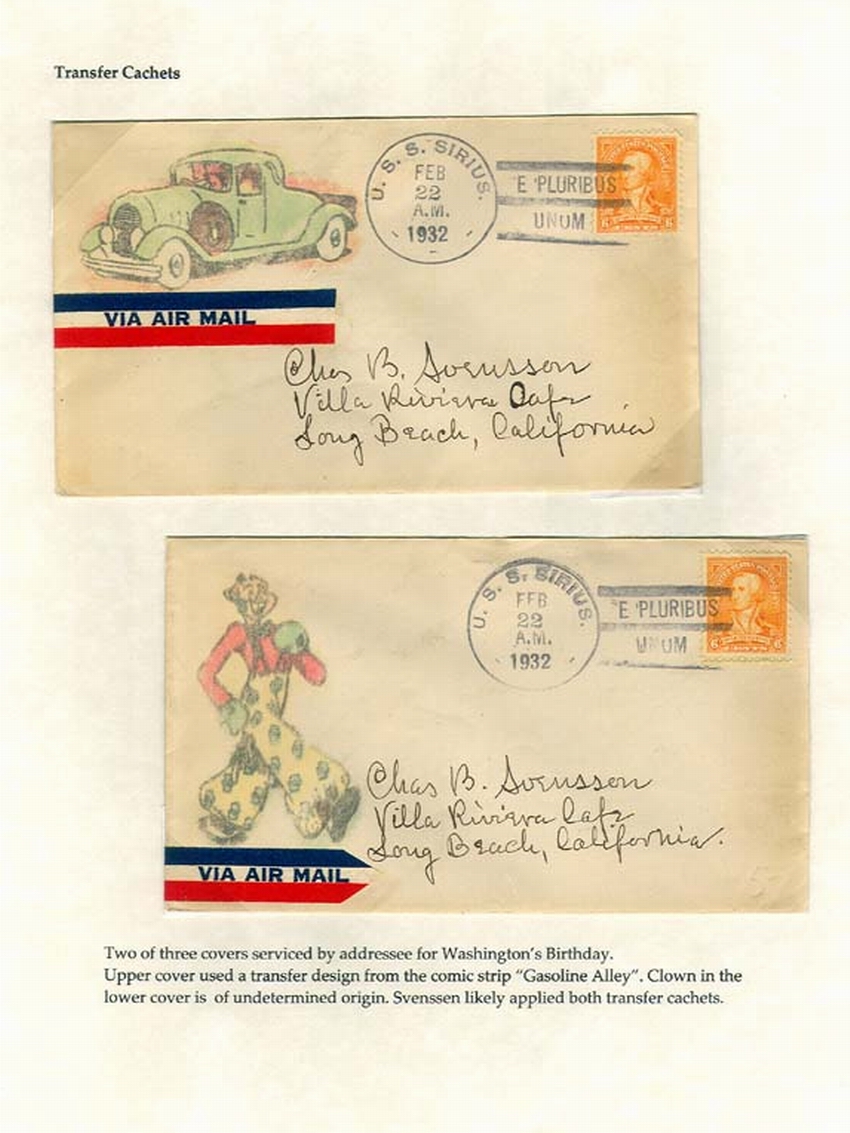 Transfer Cachets
U. S. S. SIRIUS.
FEB
22
A.M.
1932
E PLURIBUS
UNUM
6 6
VIA AIR MAIL
Chas B. Svensson
Villa Riviera Cafe
Long Beach, California
U. S. S. SIRIUS.
FEB
22
A.M.
1932
"E PLURIBUS
UNUM
6 6
Chas B. Svensson
Villa Riviera Cafe
Long Beach, California.
VIA AIR MAIL
57
Two of three covers serviced by addressee for Washington's Birthday.
Upper cover used a transfer design from the comic strip "Gasoline Alley". Clown in the
lower cover is of undetermined origin. Svenssen likely applied both transfer cachets.